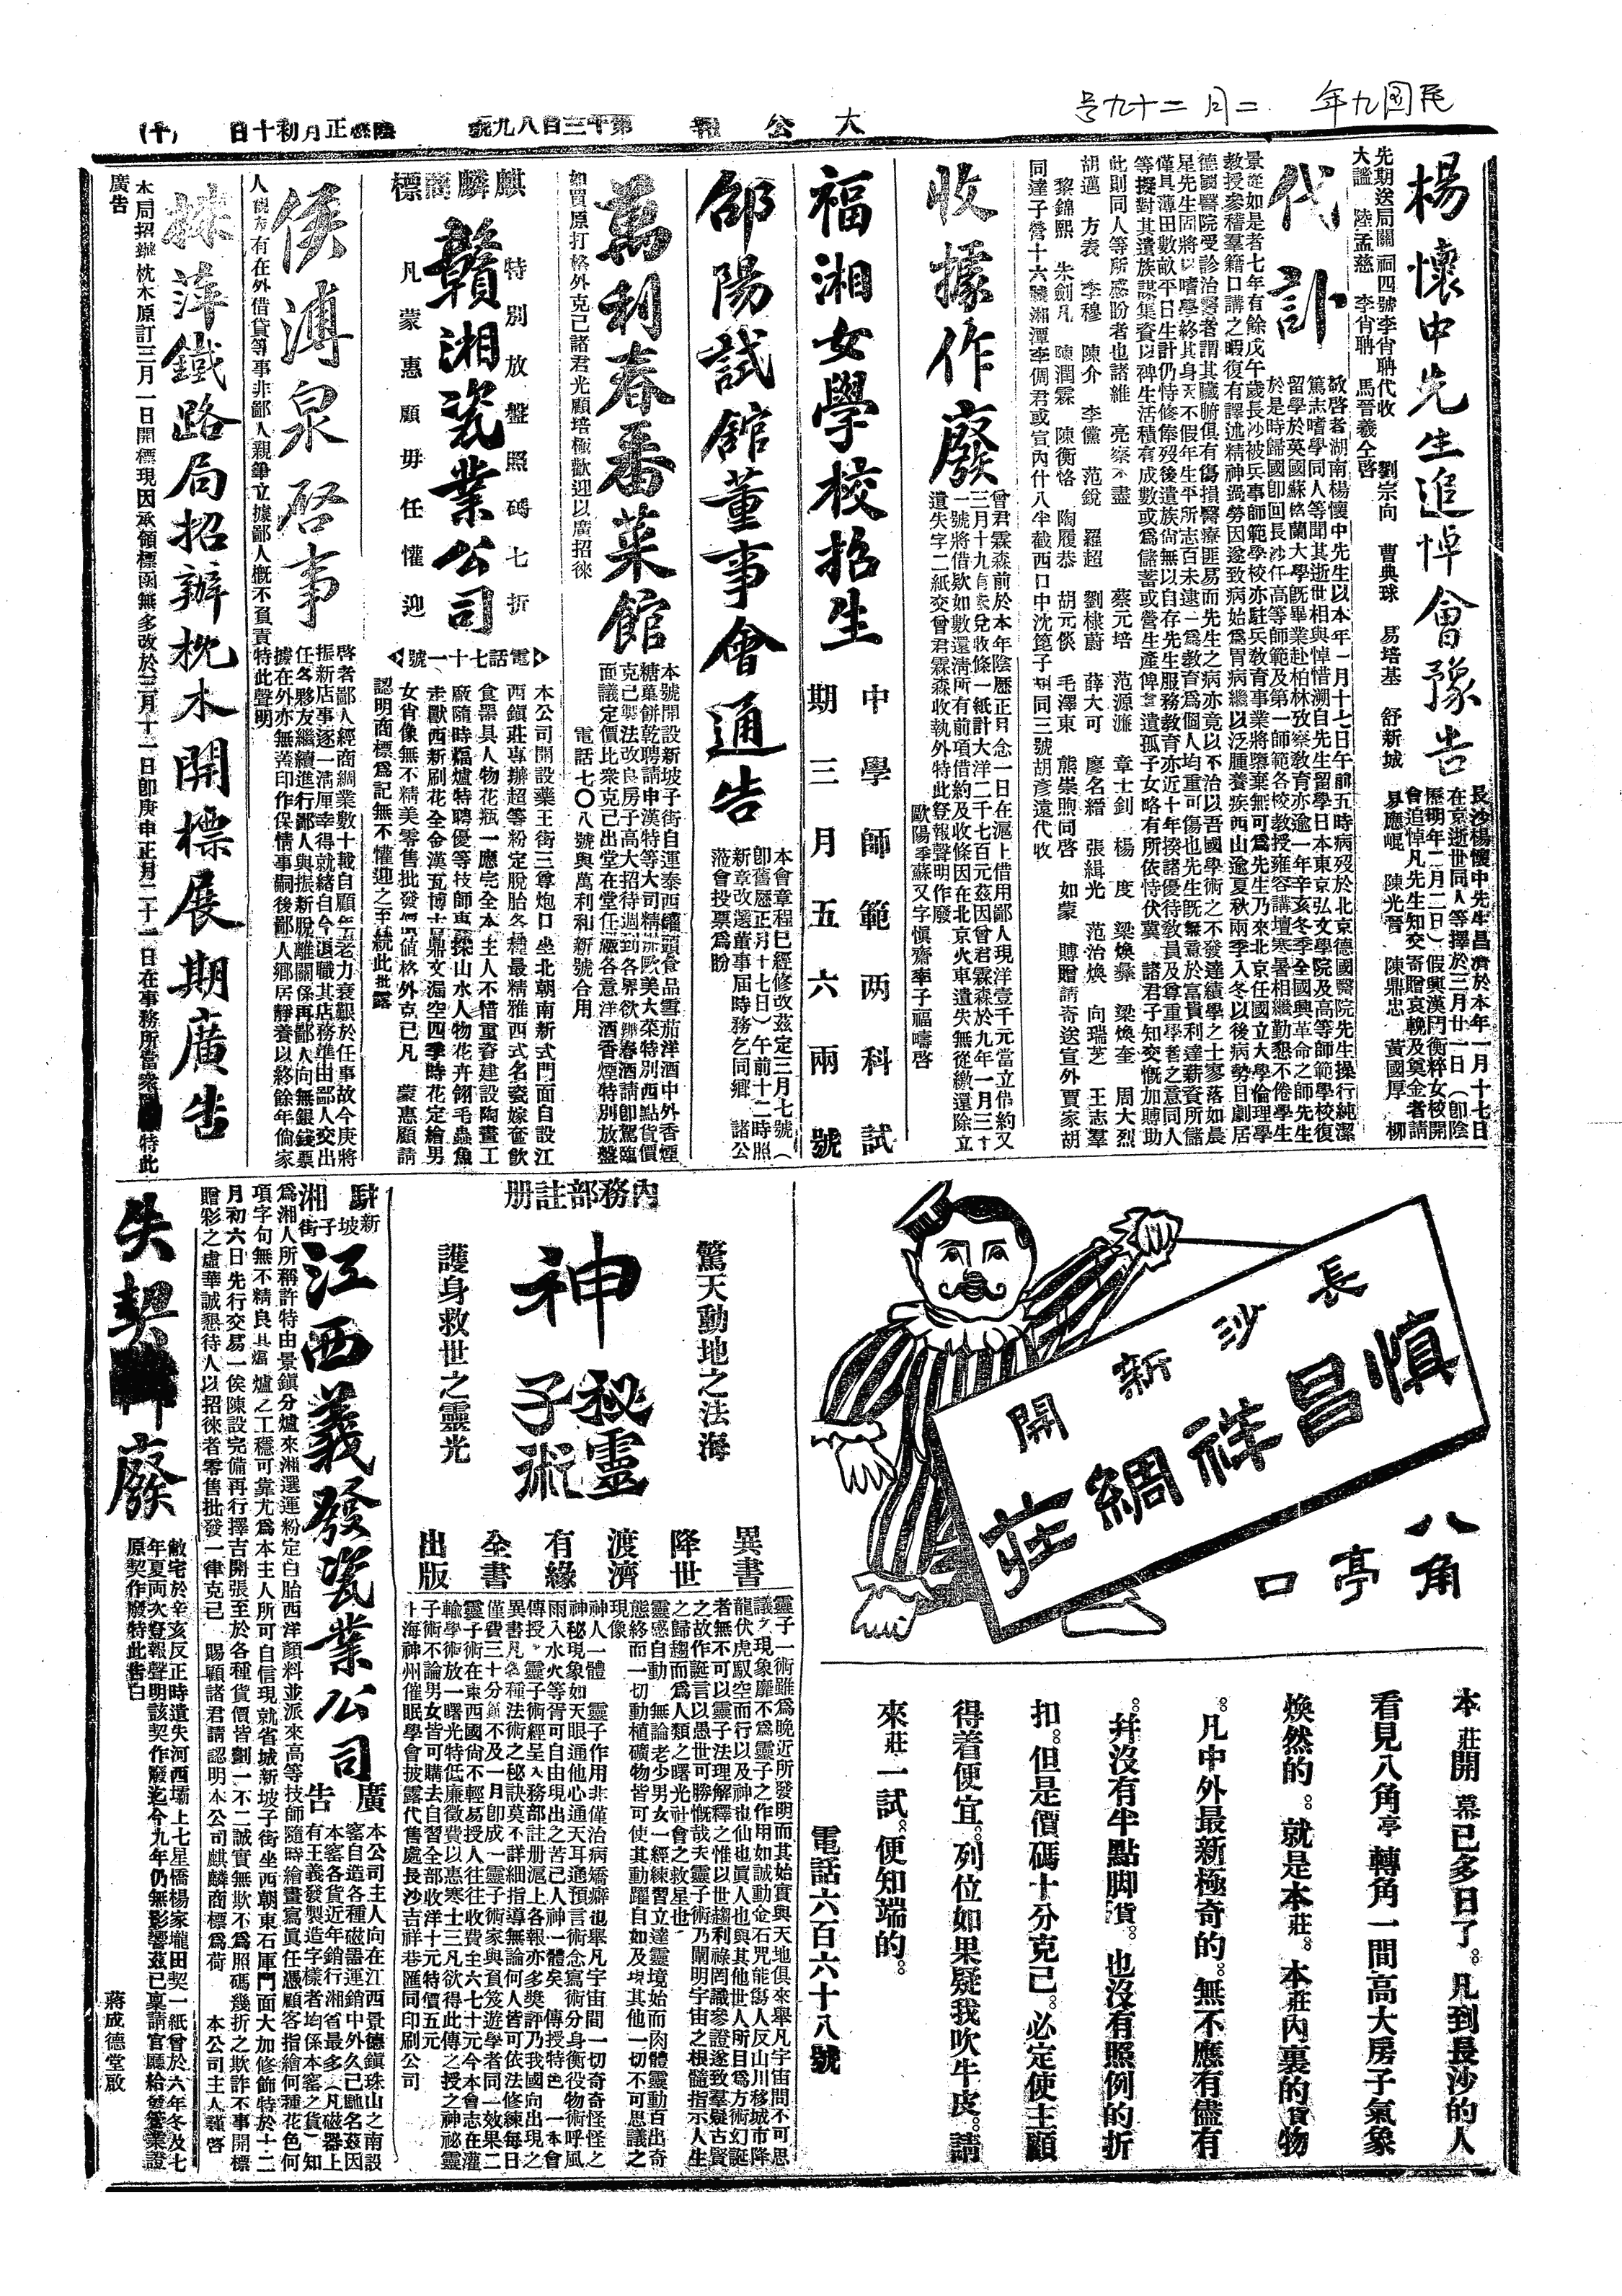 民國九年 二月二十九号
大公報
第千三百八九號
陰曆正月初十日
(十)
楊懷中先生追悼會豫告
長沙楊懷中先生昌濟於本年一月十七日
在京逝世同人等擇於三月廿一日(卽陰
曆明年二月二日)假興漢門衡粹女校開
會追悼凡先生知交寄贈哀輓及奠金者請
先期送局關祠四號李肖聃代收
劉宗向 曹典球 易培基 舒新城 易應崐 陳光晉 陳鼎忠 黃國厚 柳
大謐 陸孟慈 李肖聃 馬晉羲仝啓
代訃
敬啓者湖南楊懷中先生以本年一月十七日午前五時病歿於北京德國醫院先生操行純潔
篤志嗜學同人等聞其逝世相與悼惜溯自先生留學日本東京弘文學院及高等師範學校復
留學於英國蘇格蘭大學旣畢業赴柏林攷察敎育亦逾一年辛亥冬季全國興革命之師先生
於是時歸國卽回長沙任高等師範及第一師範各校敎授雍容講壇寒暑相繼勤懇不倦學生
景從如是者七年有餘戊午歲長沙被兵事師範學校亦駐兵敎育事業將墮棄無可爲先生乃來北京任國立大學倫理學
敎授參稽羣籍口講之暇復有譯述精神過勞因遂致病始爲胃病繼以泛腫養疾西山逾夏秋兩季入冬以後病勢日劇居
德國醫院受診治醫者謂其臟腑俱有傷損醫療匪易而先生之病亦竟以不治以吾國學術之不發達績學之士寥落如晨
星先生固將以嗜學終其身天不假年生平所志百未逮一爲敎育爲個人均重可傷也先生旣無意於富貴利達薪資所儲
僅具薄田數畝平日生計仍恃修俸歿後遺族尙無以自存先生服務敎育亦近十年揆諸優待敎員及尊重學者之意同人
等擬對其遺族謀集資以稗生活積有成數或爲儲蓄或營生產俾其遺孤子女略有所依恃伏冀 諸君子知交慨加賻助
此則同人等所感盼者也諸維 亮察不盡
蔡元培 范源濂 章士釗 楊 度 梁煥彝 梁煥奎 周大烈
胡邁 方表 李穆 陳介 李儻 范銳 羅超 劉棣蔚 薛大可 廖名縉 張緝光 范治煥 向瑞芝 王志羣
黎錦熙 朱劍凡 陳潤霖 陳衡恪 陶履恭 胡元倓 毛澤東 熊崇煦同啓 如蒙 賻贈請寄送宣外賈家胡
同達子營十六號湘潭李倜君或宣內什八半截西口中沈篦子胡同三號胡彥遠代收
收據作廢
曾君霖森前於本年陰曆正月念一日在滬上借用鄙人現洋壹千元當立借約又
一號將借欵如數還淸所有前項借約及收條因在北京火車遺失無從繳還除立
遺失字二紙交曾君霖森收執外特此登報聲明作廢
歐陽季蘇又字愼齋率子福疇啓
福湘女學校招生
中學師範两科試
期三月五六兩號
邵陽試館董事會通告
本會章程已經修改茲定三月七號(
卽舊曆正月十七日)午前十二時照
新章改選董事屆時務乞同鄉 諸公
蒞會投票爲盼
萬利春番菜館
本號開設新坡子街自運泰西罐頭食品雪茄洋酒中外香煙
克己製法改良房子高大招待週到各界欲聚春酒請卽駕臨
面議定價比衆克己出堂在堂任厰各意洋酒香煙特別放盤
如買原打格外克己諸君光顧培極歡迎以廣招徠
電話七〇八號與萬利和新號合用
麒麟商標
贛湘瓷業公司
特別放盤照碼七折
凡蒙惠顧毋任懽迎
電話七十一號
本公司開設藥王街三尊炮口坐北朝南新式門面自設江
西鎭莊專辦超等粉定脫胎各種最精雅西式名瓷嫁奩飮
食器具人物花瓶一應完全本主人不惜重資建設陶畫工
廠隨時煏爐特聘優等技師專採山水人物花卉翎毛蟲魚
走獸西新刷花全金漢瓦博古鼎文漏空四季時花定繪男
女肖像無不精美零售批發價値格外克己凡 蒙惠顧請
認明商標爲記無不懽迎之至統此批露
侯溥泉啓事
啓者鄙人經商綢業數十載自願年老力衰艱於任事故今庚將
振新店事逐一淸厘幸得就緖自今退職其店務準由鄙人交出
任各夥友繼續進行鄙人與振新脫離關係再鄙人向無銀錢票
據在外亦無蓋印作保情事嗣後鄙人鄉居靜養以終餘年倘家
人戚友有在外借貸等事非鄙人親筆立據鄙人槪不負責特此聲明
株萍鐵路局招辦枕木開標展期廣告
本局招辦枕木原訂三月一日開標現因承領標函無多改於三月十一日卽庚申正月二十一日在事務所當衆特此
廣告
長沙新開
愼昌祥綢莊
八角亭口
本莊開幕已多日了。凡到長沙的人
看見八角亭轉角一間高大房子氣象
煥然的。就是本莊。本莊內裏的貨物
。凡中外最新極奇的。無不應有儘有
。幷沒有半點脚貨。也沒有照例的折
扣。但是價碼十分克己。必定使主顧
得着便宜。列位如果疑我吹牛皮。請
來莊一試。便知端的。
電話六百六十八號
內務部註册
驚天動地之法海
神秘靈子術
護身救世之靈光
異書降世渡濟有緣全書出版
靈子一術雖爲晚近所發明而其始實與天地俱來舉凡宇宙間不可思
議之現象靡不爲靈子之作用如誠動金石咒能傷人反山川移城市降
龍伏虎馭空而行以及神也仙也眞人也與其他世人所目爲方術幻誕
者無不可以靈子法理解釋之惟以世趨利祿罔識參證遂致羣疑古賢
之故作誕言以愚世可勝慨哉夫靈子術乃闡明宇宙之根髓指示人生
之歸趨而爲人類之曙光社會之救星也
靈感自動 無論老少男女一經練習立達靈境始而肉體靈動百出奇
態終而一切動植礦物皆可使其動躍自如及現其他一切不可思議之
現像
神人一體 靈子作用非僅治病矯癖也舉凡宇宙間一切奇奇怪怪之
神秘現象如天眼通他心通天耳通預言術念寫術分身術役物術呼風
雨入水火等胥可自由現出之苦己人神一體矣 傳授特色 一本會
傳授之靈子術經呈入務部註册滬上各報亦多獎評乃我國向出現之
異書凡各種法術之秘訣莫不詳細指導無論何人皆可依法修練每日
僅費三十分鐘不及一月卽成一靈子術家與負笈遊學者同一效果二
靈子術在東西國尙不輕易授人往往收費至六七十元今本會志在灌
輸學術放一曙光特低廉徵費以惠寒士三凡欲得此傳之授之神祕靈
子術不論男女皆可購去自習全部收洋十元特價五元
上海神州催眠學會披露代售處長沙吉祥巷匯同印刷公司
駐湘新坡子街
江西義發瓷業公司廣告
本公司主人向在江西景德鎭珠山之南設
窰自造各種磁器運銷中外久已馳名茲因
本窰各貨近年銷行湘省最多(凡磁器上
有王義發製造字樣者均係本窰之貨)知
爲湘人所稱許特由景鎭分爐來湘選運粉定白胎西洋顏料並派來高等技師隨時繪畫寫眞任憑顧客指繪何種花色何
項字句無不精良其煏爐之工穩可靠尤爲本主人所可自信現就省城新坡子街坐西朝東石庫門面大加修飾特於十二
月初六日先行交易一俟陳設完備再行擇吉開張至於各種貨價皆劃一不二誠實無欺不爲照碼幾折之欺詐不事開標
贈彩之虛華誠懇待人以招徠者零售批發一律克己 賜顧諸君請認明本公司麒麟商標爲荷 本公司主人謹啓
失契作廢
敝宅於辛亥反正時遺失河西壩上七星橋楊家壠田契一紙曾於六年冬及七
年夏兩次登報聲明該契作廢迄今九年仍無影響茲已稟請官廳給發管業證
原契作廢特此告白
蔣成德堂啟